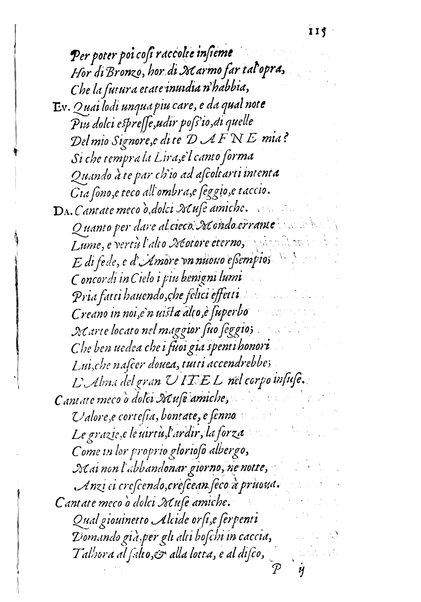 115
Per poter poi così raccolte insieme
Hor di Bronzo, hor di Marmo far tal'opra,
Che la futura etate inuidia n'habbia,
Ev. Quai lodi unqua piu care, e da qual note
Piu dolci espresse, udir poss'io, di quelle
Del mio Signore, e di te DAFNE mia?
Si che tempra la Lira, e'l canto forma
Quando à te par ch'io ad ascoltarti intenta
Gia sono, e teco all'ombra, e seggio, e taccio.
Da. Cantate meco ò dolci Muse amiche.
Quanto per dare al cieco Mondo errante
Lume, e vertù l'alto Motore eterno,
E di fede, e d'Amore vn nuouo essempio;
Concordi in Cielo i piu benigni lumi
Pria fatti hauendo, che felici effetti
Creano in noi, e'n uista alto, e superbo
Marte locato nel maggior suo seggio;
Che ben uedea che i suoi gia spenti honori
Lui, che nascer douea, tutti accendrebbe;
L'Alma del gran VITEL nel corpo infuse.
Cantate meco ò dolci Muse amiche,
Valore, e cortesia, bontate, e senno
Le grazie, e le uirtù, l'ardir, la forza
Come in lor proprio glorioso albergo,
Mai non l'abbandonar giorno, ne notte,
Anzi ci crescendo, crescean seco à pruoua.
Cantate meco ò dolci Muse amiche.
Qual giouinetto Alcide orsi, e serpenti
Domando già, per gli alti boschi in caccia,
Talhora al salto, & alla lotta, e al disco,
P ij